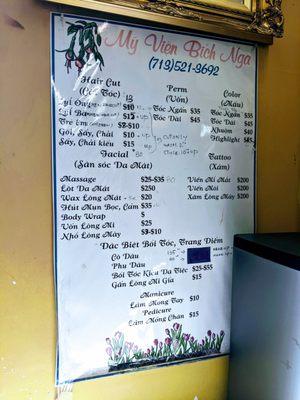 Mỹ Viện Bích Nga
(713)521-3692
Hair Cut
(Cắt Tóc)
Perm
(Uốn)
Color
(Màu)
$10
$10
Trẻ Em $10
Gội, Sấy, Chải $10
Sấy, Chải kiểu $15
Tóc Ngắn $35
Tóc Dài $45
Tóc Ngắn $35
Tóc Dài $45
Nhuộm $40
Highlight
Facial
(Săn sóc Da Mặt)
Tattoo
(Xăm)
Massage
Lột Da Mặt $250
Wax Lông Mặt $20
Hút Mụn Bọc, Cám $35
Body Wrap $
Uốn Lông Mi $25
Nhổ Lông Mày $10
Viền Mí Mắt $200
Viền Môi $200
Xăm Lông Mày $200
Đặc Biệt Bới Tóc, Trang Điểm
Cô Dâu
Phụ Dâu
Bới Tóc Kiểu Dạ Tiệc $25-$55
Gắn Lông Mi Giả $15
Manicure
Làm Móng Tay $10
Pedicure
Làm Móng Chân $15